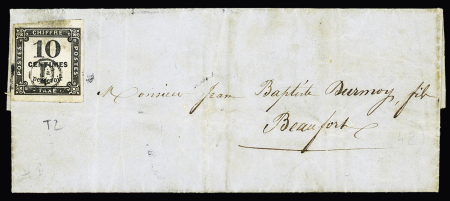 CHIFFRE
POSTES
10
CENTIMES
POSTES
TAXE
T2
Monsieur Jean Baptiste Durmoy, fils
Beaufort